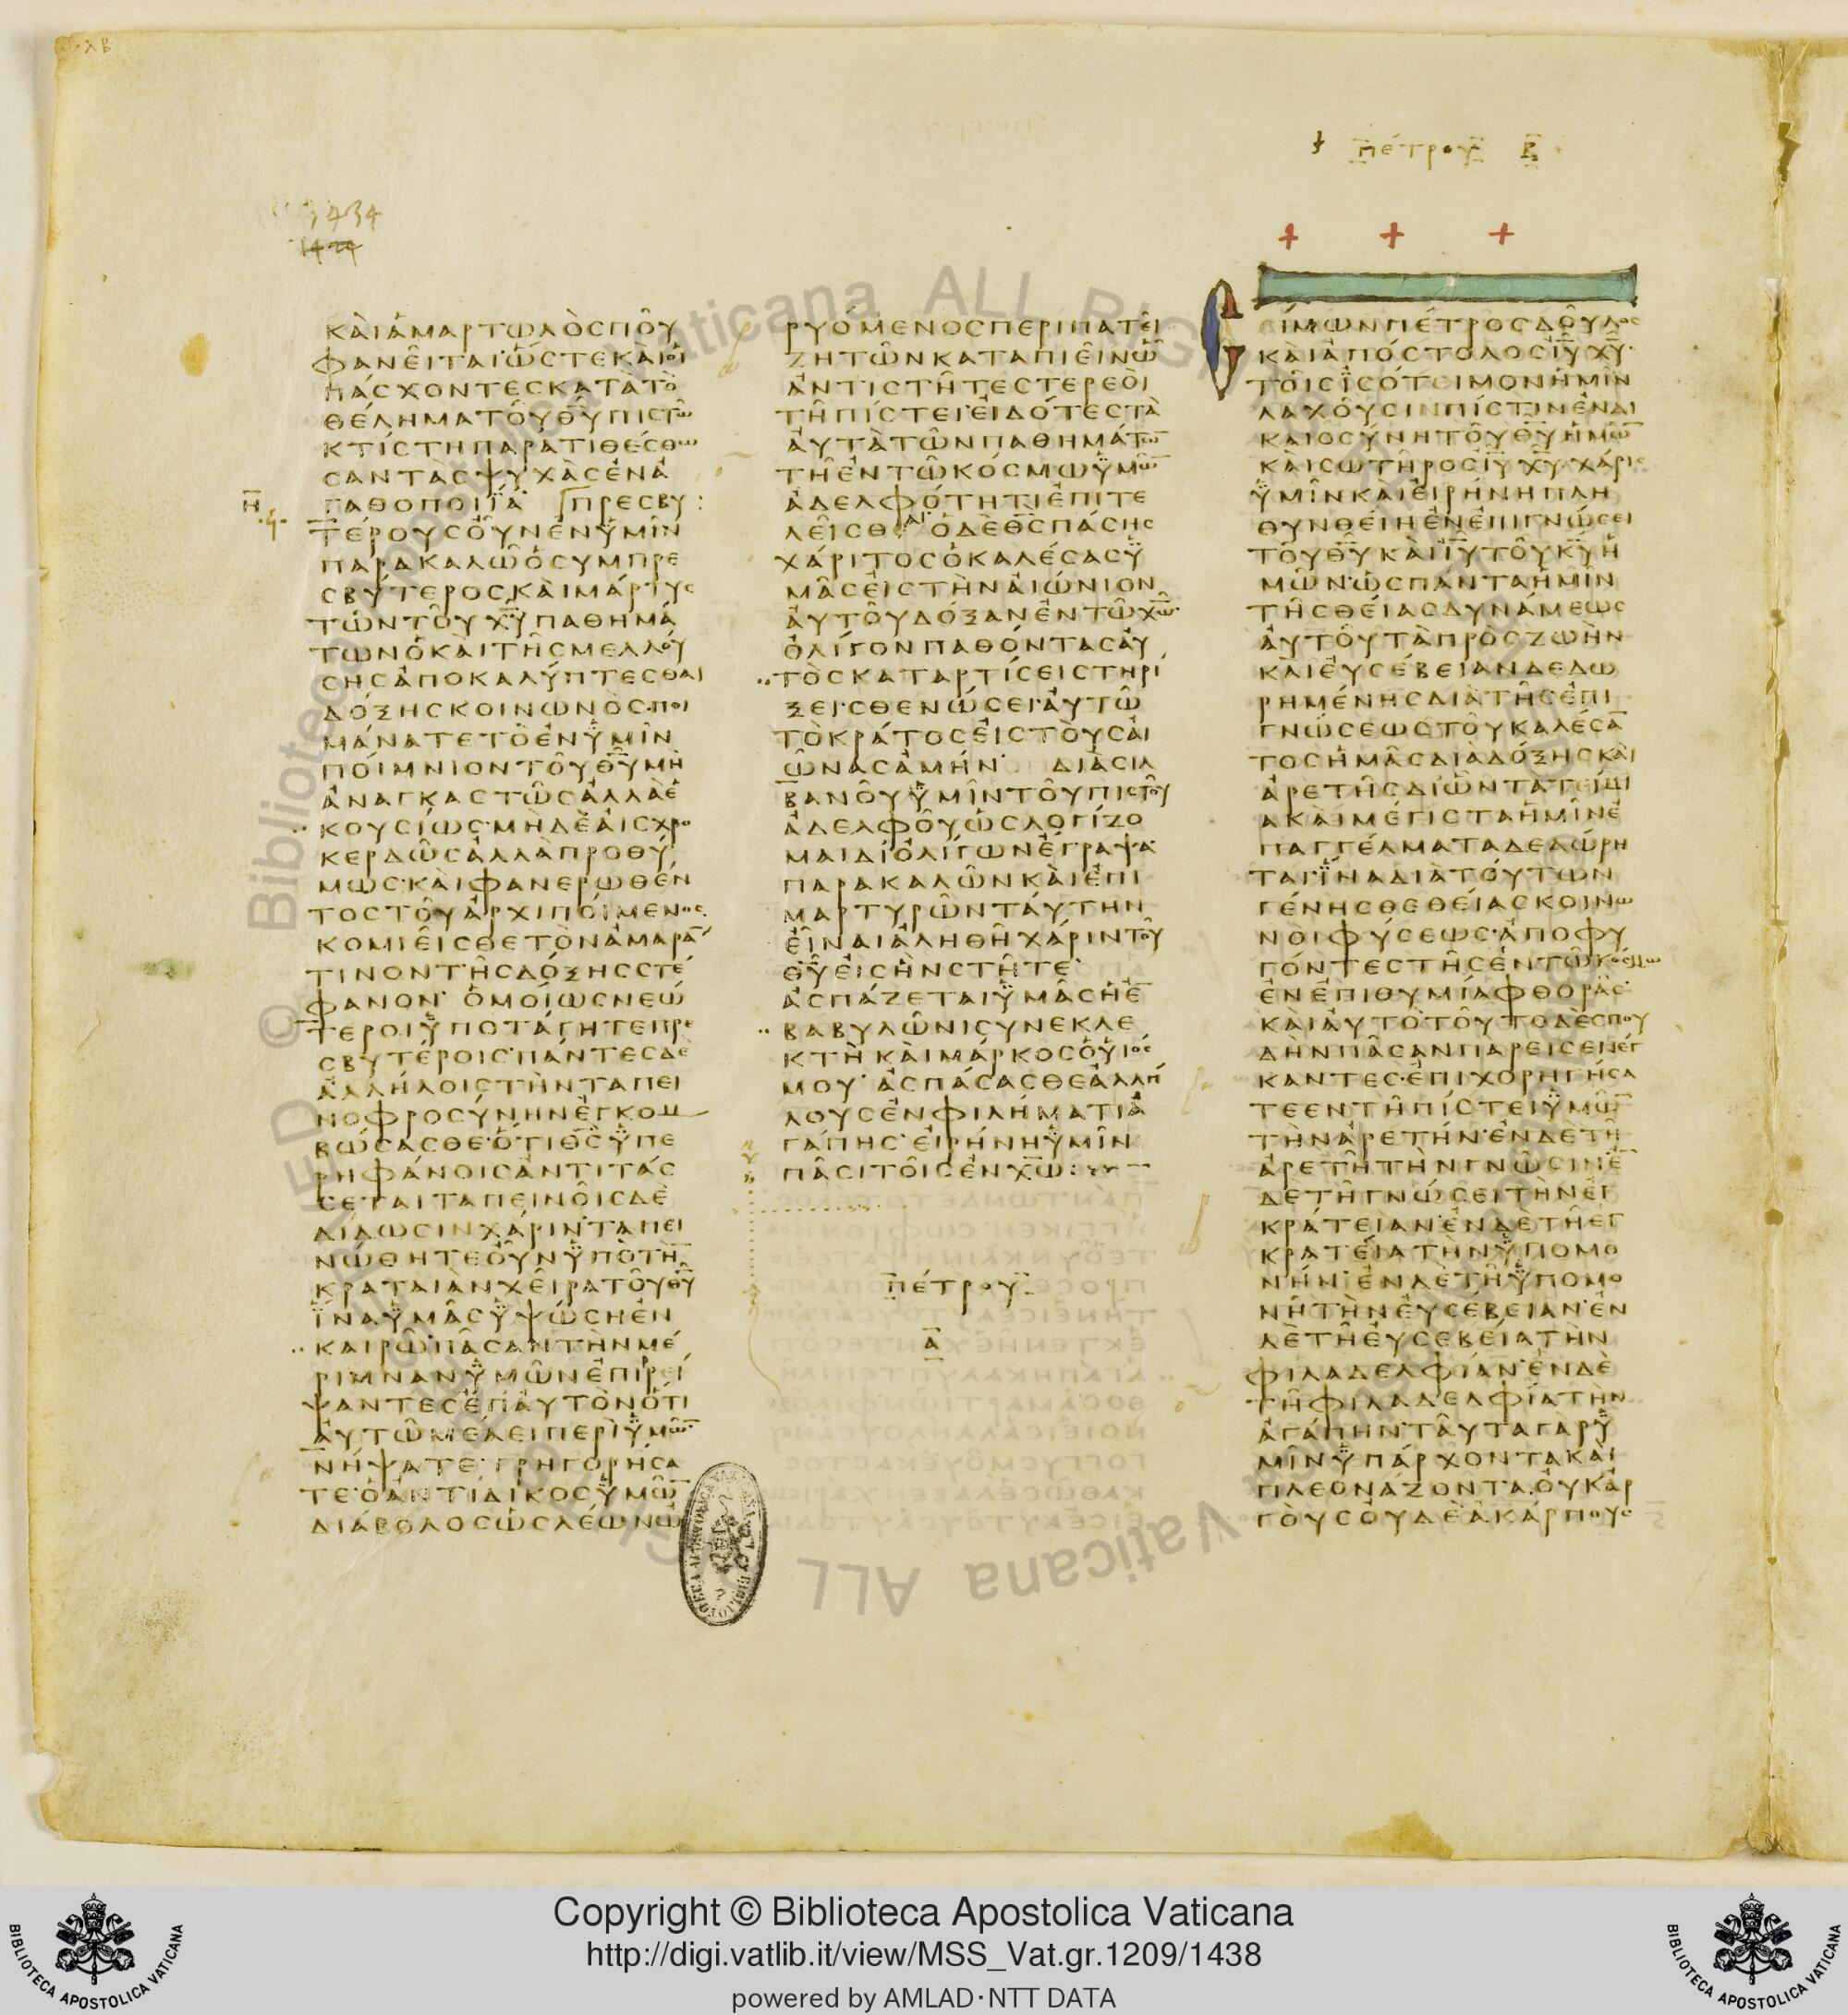 ΠΕΤΡΟΥ Β
1434
ΚΑΙ ΑΜΑΡΤΩΛΟΣ ΠΟΥ
ΦΑΝΕΙΤΑΙ ΩΣΤΕ ΚΑΙ ΟΙ
ΠΑΣΧΟΝΤΕΣ ΚΑΤΑ ΤΟ
ΘΕΛΗΜΑ ΤΟΥ ΘΥ ΠΙΣΤΩ
ΚΤΙΣΤΗ ΠΑΡΑΤΙΘΕΣΘΩ
ΣΑΝ ΤΑΣ ΨΥΧΑΣ ΕΝ Α
Η
ΓΑΘΟΠΟΙΙΑ ΠΡΕΣΒΥ
ΤΕΡΟΥΣ ΟΥΝ ΕΝ ΥΜΙΝ
ΠΑΡΑΚΑΛΩ Ο ΣΥΜΠΡΕ
ΣΒΥΤΕΡΟΣ ΚΑΙ ΜΑΡΤΥΣ
ΤΩΝ ΤΟΥ ΧΥ ΠΑΘΗΜΑ
ΤΩΝ Ο ΚΑΙ ΤΗΣ ΜΕΛΛΟΥ
ΣΗΣ ΑΠΟΚΑΛΥΠΤΕΣΘΑΙ
ΔΟΞΗΣ ΚΟΙΝΩΝΟΣ ΠΟΙ
ΜΑΝΑΤΕ ΤΟ ΕΝ ΥΜΙΝ
ΠΟΙΜΝΙΟΝ ΤΟΥ ΘΥ ΜΗ
ΑΝΑΓΚΑΣΤΩΣ ΑΛΛΑ Ε
ΚΟΥΣΙΩΣ ΜΗΔΕ ΑΙΣΧΡΟ
ΚΕΡΔΩΣ ΑΛΛΑ ΠΡΟΘΥ
ΜΩΣ ΚΑΙ ΦΑΝΕΡΩΘΕΝ
ΤΟΣ ΤΟΥ ΑΡΧΙΠΟΙΜΕΝΟΣ
ΚΟΜΙΕΙΣΘΕ ΤΟΝ ΑΜΑΡΑ
ΤΙΝΟΝ ΤΗΣ ΔΟΞΗΣ ΣΤΕ
ΦΑΝΟΝ ΟΜΟΙΩΣ ΝΕΩ
ΤΕΡΟΙ ΥΠΟΤΑΓΗΤΕ ΠΡΕ
ΣΒΥΤΕΡΟΙΣ ΠΑΝΤΕΣ ΔΕ
ΑΛΛΗΛΟΙΣ ΤΗΝ ΤΑΠΕΙ
ΝΟΦΡΟΣΥΝΗΝ ΕΓΚΟΜ
ΒΩΣΑΣΘΕ ΟΤΙ ΘΣ ΥΠΕ
ΡΗΦΑΝΟΙΣ ΑΝΤΙΤΑΣ
ΣΕΤΑΙ ΤΑΠΕΙΝΟΙΣ ΔΕ
ΔΙΔΩΣΙΝ ΧΑΡΙΝ ΤΑΠΕΙ
ΝΩΘΗΤΕ ΟΥΝ ΥΠΟ ΤΗ
ΚΡΑΤΑΙΑΝ ΧΕΙΡΑ ΤΟΥ ΘΥ
ΙΝΑ ΥΜΑΣ ΥΨΩΣΗ ΕΝ
ΚΑΙΡΩ ΠΑΣΑΝ ΤΗΝ ΜΕ
ΡΙΜΝΑΝ ΥΜΩΝ ΕΠΙΡΕΙ
ΨΑΝΤΕΣ ΕΠ ΑΥΤΟΝ ΟΤΙ
ΑΥΤΩ ΜΕΛΕΙ ΠΕΡΙ ΥΜΩ
ΝΗΨΑΤΕ ΓΡΗΓΟΡΗΣΑ
ΤΕ Ο ΑΝΤΙΔΙΚΟΣ ΥΜΩ
ΔΙΑΒΟΛΟΣ ΩΣ ΛΕΩΝ Ω
ΡΥΟΜΕΝΟΣ ΠΕΡΙΠΑΤΕΙ
ΖΗΤΩΝ ΚΑΤΑΠΙΕΙΝ Ω
ΑΝΤΙΣΤΗΤΕ ΣΤΕΡΕΟΙ
ΤΗ ΠΙΣΤΕΙ ΕΙΔΟΤΕΣ ΤΑ
ΑΥΤΑ ΤΩΝ ΠΑΘΗΜΑΤΩ
ΤΗ ΕΝ ΤΩ ΚΟΣΜΩ ΥΜΩ
ΑΔΕΛΦΟΤΗΤΙ ΕΠΙΤΕ
ΛΕΙΣΘΑΙ Ο ΔΕ ΘΣ ΠΑΣΗΣ
ΧΑΡΙΤΟΣ Ο ΚΑΛΕΣΑΣ Υ
ΜΑΣ ΕΙΣ ΤΗΝ ΑΙΩΝΙΟΝ
ΑΥΤΟΥ ΔΟΞΑΝ ΕΝ ΤΩ ΧΩ
ΟΛΙΓΟΝ ΠΑΘΟΝΤΑΣ ΑΥ
ΤΟΣ ΚΑΤΑΡΤΙΣΕΙ ΣΤΗΡΙ
ΞΕΙ ΣΘΕΝΩΣΕΙ ΑΥΤΩ
ΤΟ ΚΡΑΤΟΣ ΕΙΣ ΤΟΥΣ ΑΙ
ΩΝΑΣ ΑΜΗΝ ΔΙΑ ΣΙΛ
ΒΑΝΟΥ ΥΜΙΝ ΤΟΥ ΠΙΣΤΟΥ
ΑΔΕΛΦΟΥ ΩΣ ΛΟΓΙΖΟ
ΜΑΙ ΔΙ ΟΛΙΓΩΝ ΕΓΡΑΨΑ
ΠΑΡΑΚΑΛΩΝ ΚΑΙ ΕΠΙ
ΜΑΡΤΥΡΩΝ ΤΑΥΤΗΝ
ΕΙΝΑΙ ΑΛΗΘΗ ΧΑΡΙΝ ΤΟΥ
ΘΥ ΕΙΣ ΗΝ ΣΤΗΤΕ
ΑΣΠΑΖΕΤΑΙ ΥΜΑΣ Η Ε
ΒΑΒΥΛΩΝΙ ΣΥΝΕΚΛΕ
ΚΤΗ ΚΑΙ ΜΑΡΚΟΣ Ο ΥΙΟΣ
ΜΟΥ ΑΣΠΑΣΑΣΘΕ ΑΛΛΗ
ΛΟΥΣ ΕΝ ΦΙΛΗΜΑΤΙ Α
ΓΑΠΗΣ ΕΙΡΗΝΗ ΥΜΙΝ
ΠΑΣΙ ΤΟΙΣ ΕΝ ΧΩ
ΠΕΤΡΟΥ
Α
ΣΙΜΩΝ ΠΕΤΡΟΣ ΔΟΥΛΟΣ
ΚΑΙ ΑΠΟΣΤΟΛΟΣ ΙΥ ΧΥ
ΤΟΙΣ ΙΣΟΤΕΙΜΟΝ ΗΜΙΝ
ΛΑΧΟΥΣΙΝ ΠΙΣΤΙΝ ΕΝ ΔΙ
ΚΑΙΟΣΥΝΗ ΤΟΥ ΘΥ ΗΜΩ
ΚΑΙ ΣΩΤΗΡΟΣ ΙΥ ΧΥ ΧΑΡΙΣ
ΥΜΙΝ ΚΑΙ ΕΙΡΗΝΗ ΠΛΗ
ΘΥΝΘΕΙΗ ΕΝ ΕΠΙΓΝΩΣΕΙ
ΤΟΥ ΘΥ ΚΑΙ ΙΥ ΤΟΥ ΚΥ Η
ΜΩΝ ΩΣ ΠΑΝΤΑ ΗΜΙΝ
ΤΗΣ ΘΕΙΑΣ ΔΥΝΑΜΕΩΣ
ΑΥΤΟΥ ΤΑ ΠΡΟΣ ΖΩΗΝ
ΚΑΙ ΕΥΣΕΒΕΙΑΝ ΔΕΔΩ
ΡΗΜΕΝΗΣ ΔΙΑ ΤΗΣ ΕΠΙ
ΓΝΩΣΕΩΣ ΤΟΥ ΚΑΛΕΣΑ
ΤΟΣ ΗΜΑΣ ΔΙΑ ΔΟΞΗΣ ΚΑΙ
ΑΡΕΤΗΣ ΔΙ ΩΝ ΤΑ ΤΕΙΜΙ
Α ΚΑΙ ΜΕΓΙΣΤΑ ΗΜΙΝ Ε
ΠΑΓΓΕΛΜΑΤΑ ΔΕΔΩΡΗ
ΤΑΙ ΙΝΑ ΔΙΑ ΤΟΥΤΩΝ
ΓΕΝΗΣΘΕ ΘΕΙΑΣ ΚΟΙΝΩ
ΝΟΙ ΦΥΣΕΩΣ ΑΠΟΦΥ
ΓΟΝΤΕΣ ΤΗΣ ΕΝ ΤΩ ΚΟΣΜΩ
ΕΝ ΕΠΙΘΥΜΙΑ ΦΘΟΡΑΣ
ΚΑΙ ΑΥΤΟ ΤΟΥΤΟ ΔΕ ΣΠΟΥ
ΔΗΝ ΠΑΣΑΝ ΠΑΡΕΙΣΕΝΕΓ
ΚΑΝΤΕΣ ΕΠΙΧΟΡΗΓΗΣΑ
ΤΕ ΕΝ ΤΗ ΠΙΣΤΕΙ ΥΜΩ
ΤΗΝ ΑΡΕΤΗΝ ΕΝ ΔΕ ΤΗ
ΑΡΕΤΗ ΤΗΝ ΓΝΩΣΙΝ Ε
ΔΕ ΤΗ ΓΝΩΣΕΙ ΤΗΝ ΕΓ
ΚΡΑΤΕΙΑΝ ΕΝ ΔΕ ΤΗ ΕΓ
ΚΡΑΤΕΙΑ ΤΗΝ ΥΠΟΜΟ
ΝΗΝ ΕΝ ΔΕ ΤΗ ΥΠΟΜΟ
ΝΗ ΤΗΝ ΕΥΣΕΒΕΙΑΝ ΕΝ
ΔΕ ΤΗ ΕΥΣΕΒΕΙΑ ΤΗΝ
ΦΙΛΑΔΕΛΦΙΑΝ ΕΝ ΔΕ
ΤΗ ΦΙΛΑΔΕΛΦΙΑ ΤΗΝ
ΑΓΑΠΗΝ ΤΑΥΤΑ ΓΑΡ Υ
ΜΙΝ ΥΠΑΡΧΟΝΤΑ ΚΑΙ
ΠΛΕΟΝΑΖΟΝΤΑ ΟΥΚ ΑΡ
ΓΟΥΣ ΟΥΔΕ ΑΚΑΡΠΟΥΣ
Copyright © Biblioteca Apostolica Vaticana
http://digi.vatlib.it/view/MSS_Vat.gr.1209/1438
powered by AMLAD·NTT DATA
BIBLIOTECA APOSTOLICA VATICANA
BIBLIOTECA APOSTOLICA VATICANA